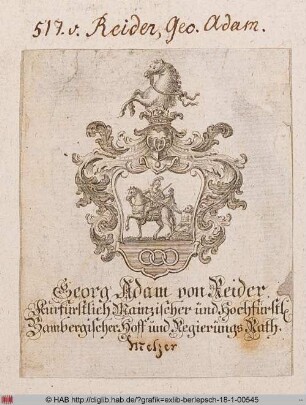 517. v. Reider, Geo. Adam.
Georg Adam von Reider
Kurfürstlich Maintzischer und Hochfürstl.
Bambergischer Hoff und Regierungs Rath.
© HAB http://diglib.hab.de/?grafik=exlib-berlepsch-18-1-00545